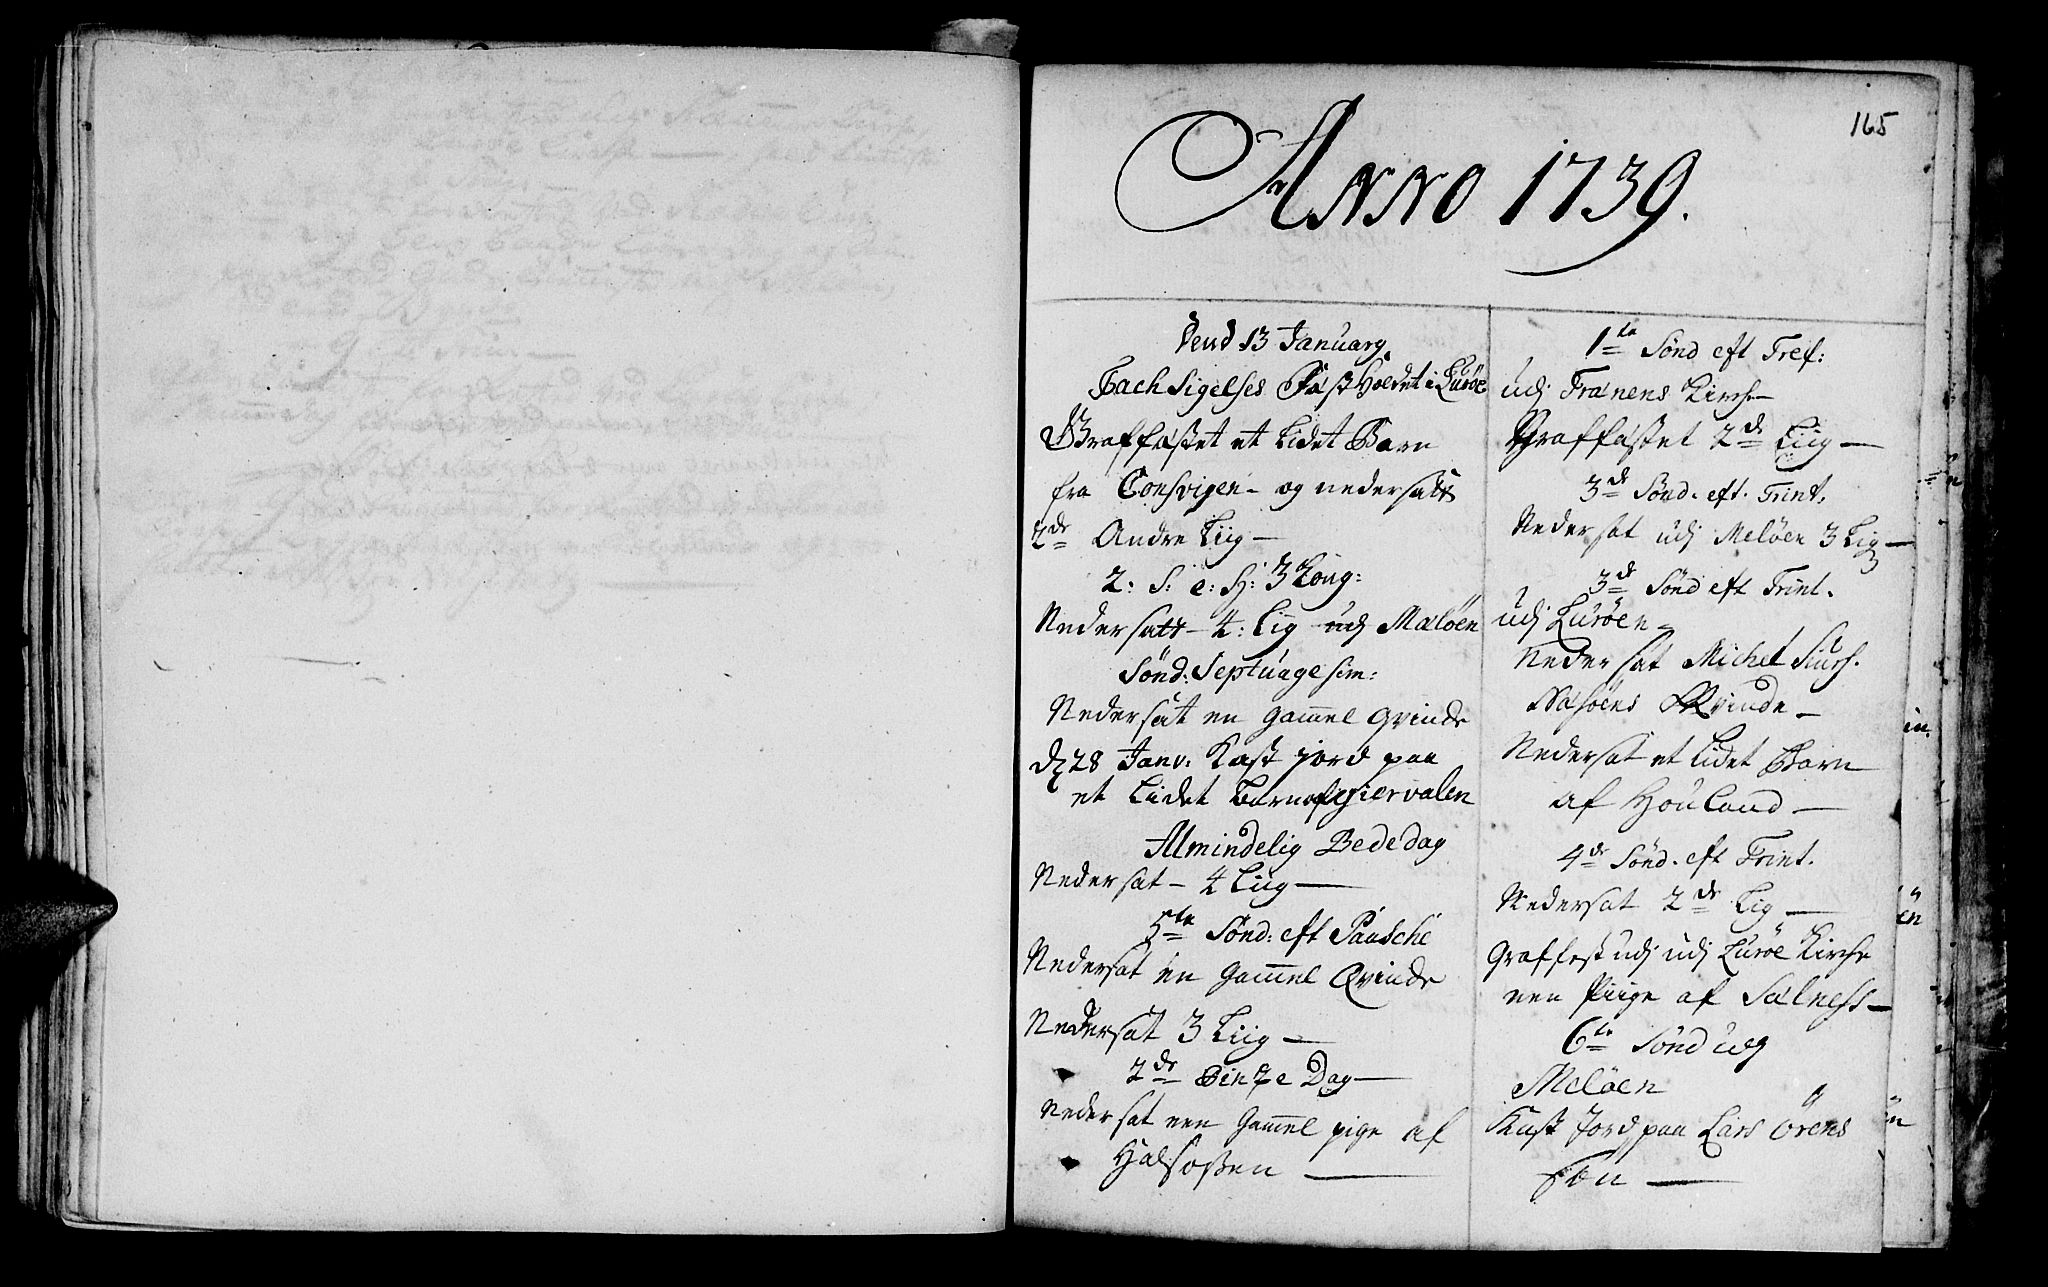 165
Anno 1739.
Dend 13 January
Tach Sigelses Fæst Holdet i Lurøe
Graffæstet et Lidet Barn
fra Tonsvigen - og nedersatt
2de Andre Liig -
2: S: e: H: 3 Kong:
Nedersatt - 4: Lig udj Meløen
Sønd: Septuagesim:
Nedersat en Gam̄el Qvinde
d 28 Janv: Kast jord paa
et Lidet barn af
Almindelig Bededag
Nedersat - 4 Liig -
5te Sønd: eft Paasche
Nedersat en Gam̄el Qvinde
Nedersat 3 Liig -
2de Pintze Dag -
Nedersat een Gam̄el pige af
Halsossen -
1te Sønd eft Tref:
udj Trænens Kirche
Graffæstet 2de Liig -
3de Sønd. eft. Trint.
Nedersat udj Meløen 3 Lig -
3de Sønd eft Trint.
udj Lurøen -
Nedersat Michel Siurs.
Qvinde -
Nedersat et Lidet Barn
af Houland -
4de Sønd. eft Trint.
Nedersat 2de Lig -
Graffest udj udj Lurøe Kirche
een Piige af Selness -
6te Sønd udj
Meløen
Kast Jord paa Lars Ørens
Søn -